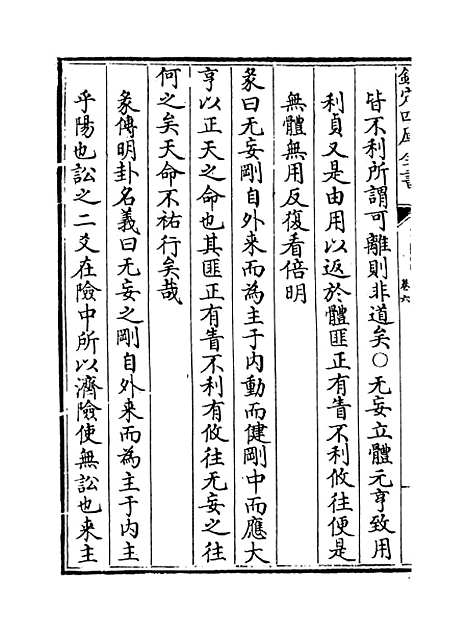 欽定四庫全書
卷六
皆不利所謂可離則非道矣○无妄立體元亨致用
利貞又是由用以返於體匪正有眚不利攸往便是
無體無用反復看倍明
彖曰无妄剛自外來而為主于内動而健剛中而應大
亨以正天之命也其匪正有眚不利有攸往无妄之往
何之矣天命不祐行矣哉
彖傳明卦名義曰无妄之剛自外來而為主于内主
乎陽也訟之二爻在險中所以濟險使無訟也來主